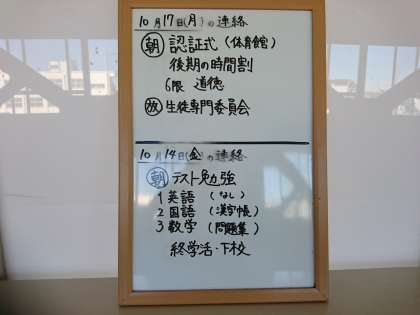 10月17日(月)の連絡
朝 認証式(体育館)
後期の時間割
6限 道徳
放 生徒専門委員会
10月14日(金)の連絡
朝 テスト勉強
1 英語(なし)
2 国語(漢字帳)
3 数学(問題集)
終学活・下校